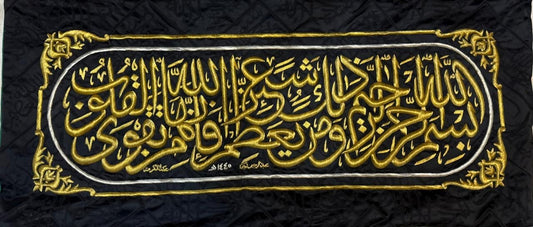 بسم الله الرحمن الرحيم ذلك ومن يعظم شعائر الله فإنها من تقوى القلوب
١٤٤٥هـ